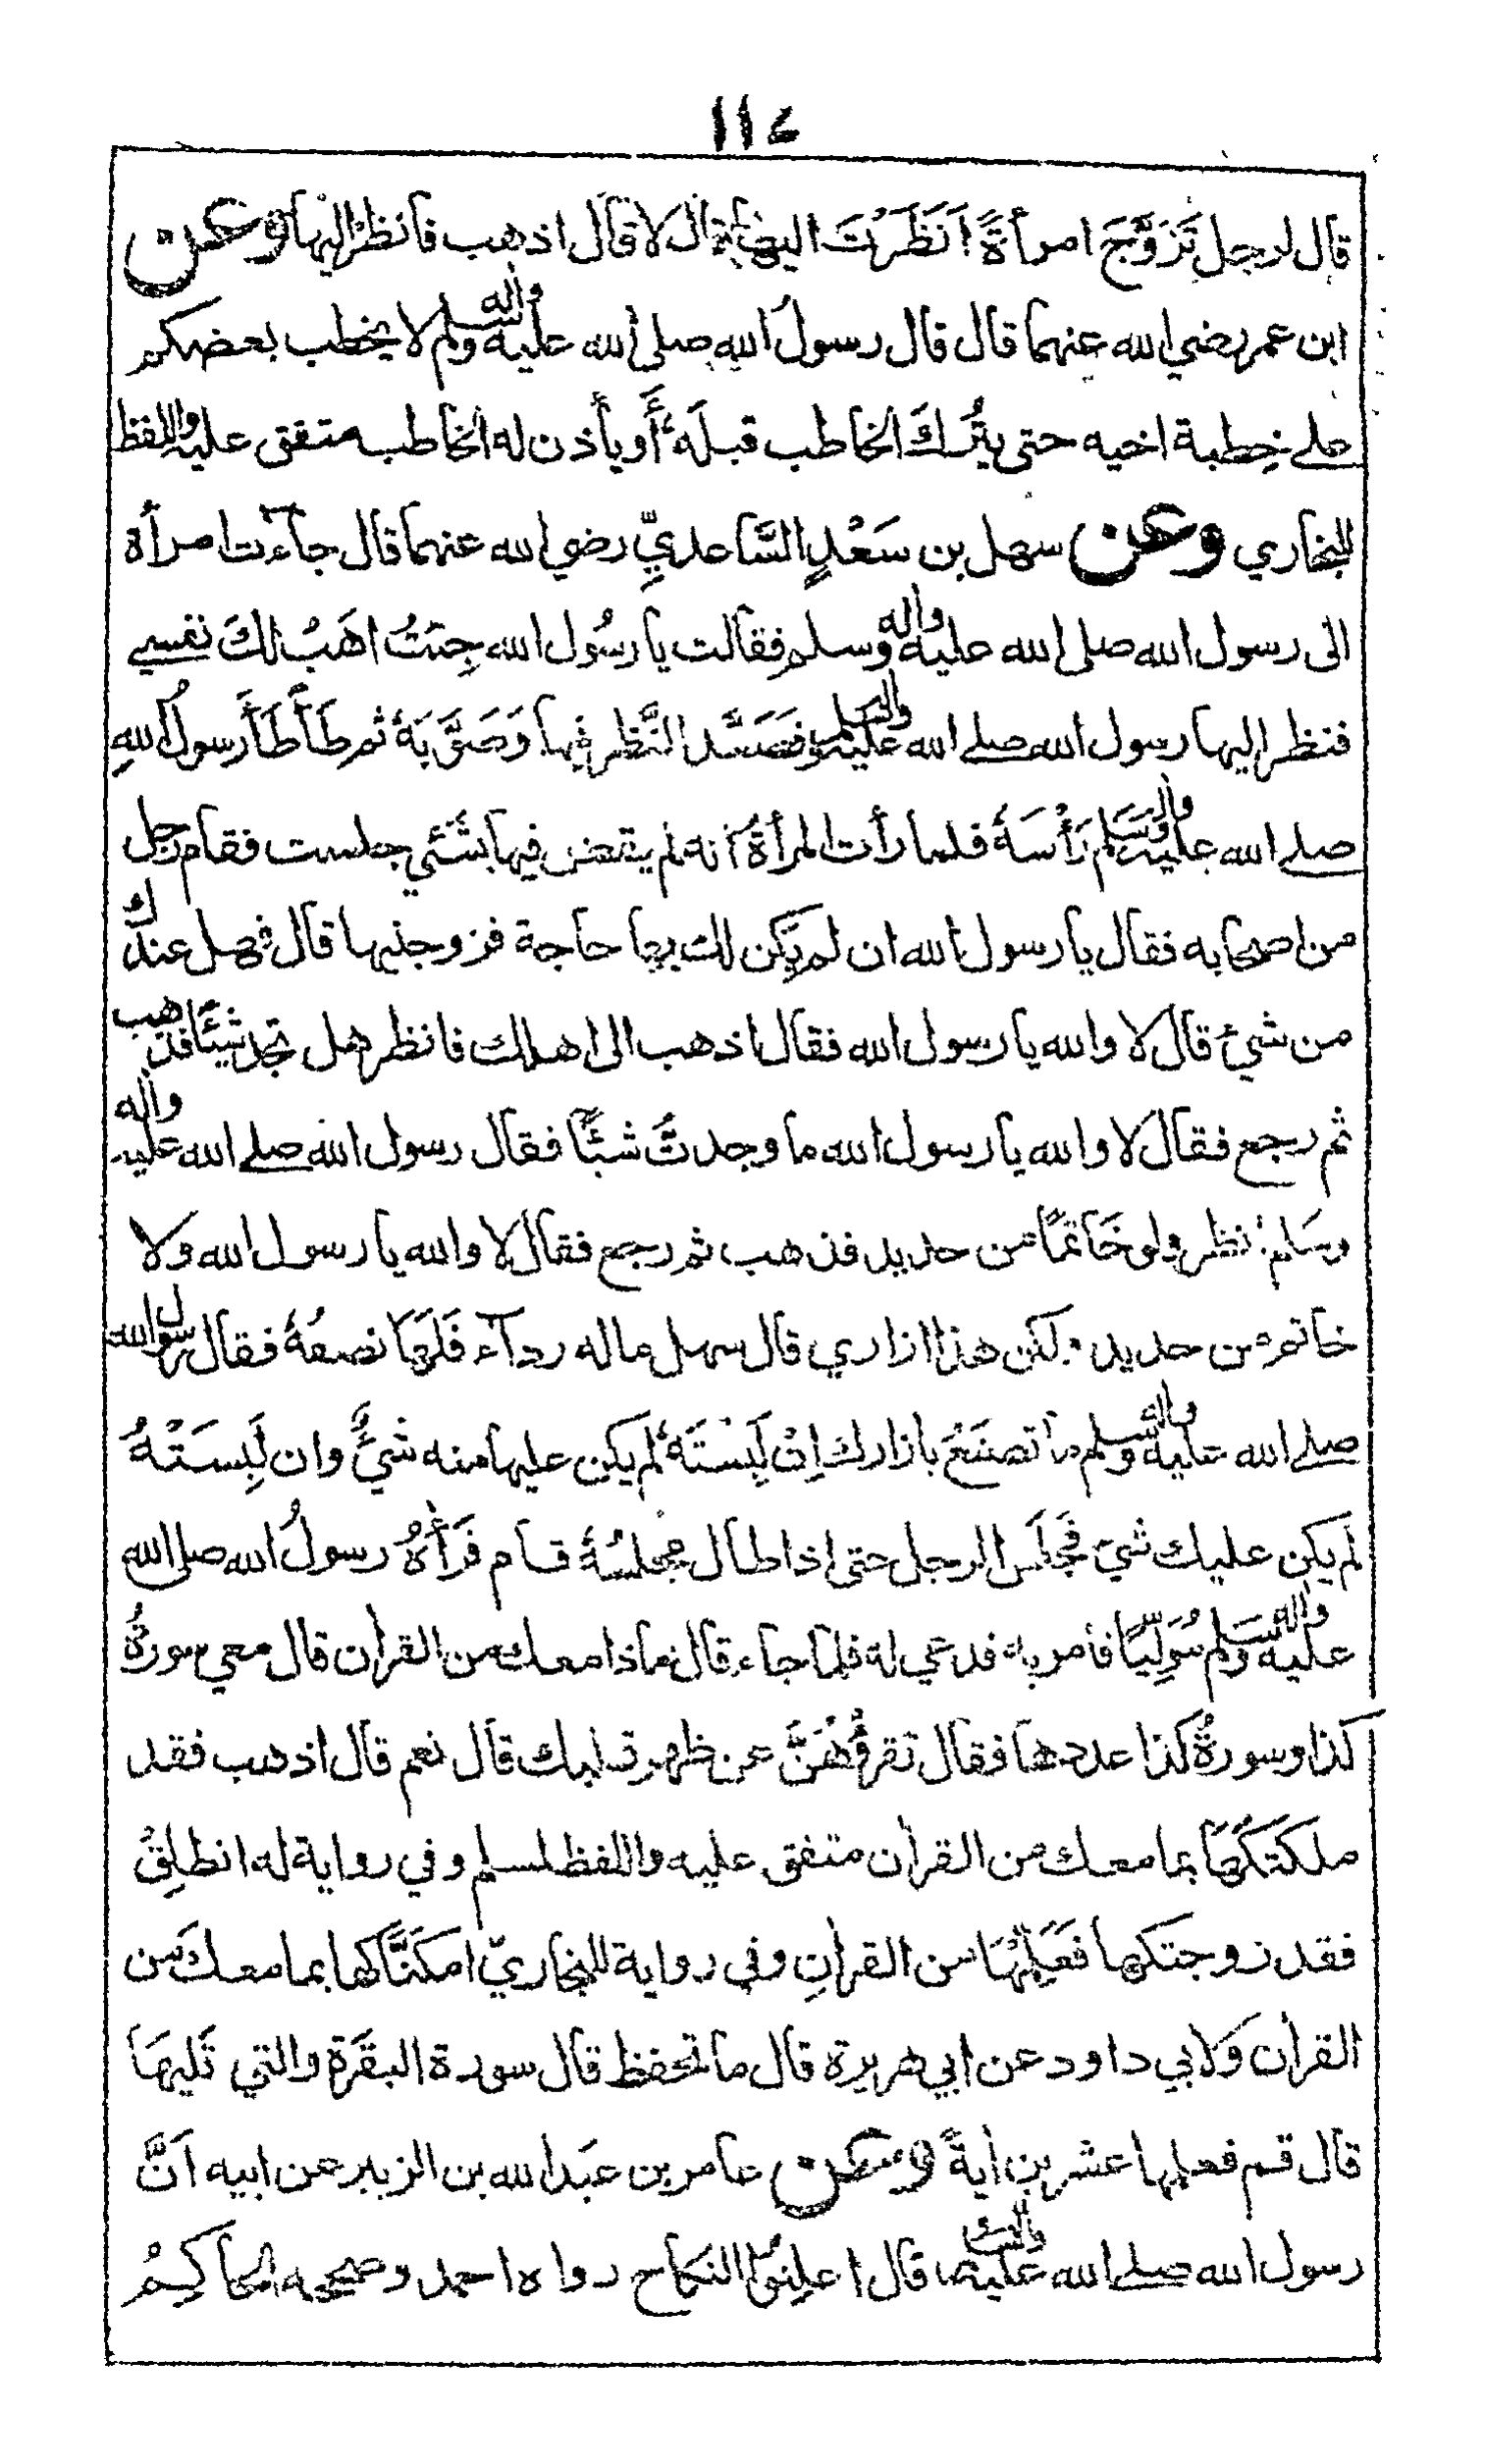 ١١٤
قال لرجل تَزَوَّجَ امرأةً اَنَظَرْتَ اليها قال لا قال اذهب فانظر اليها وعن
ابن عمر رضي الله عنهما قال قال رسولُ الله صلى الله عليه واله وسلم لا يخطب بعضكم
على خِطبة اخيه حتى يترُكَ الخاطب قبلَهُ أَو يأذن له الخاطب متفق عليه واللفظ
للبخاري وعن سهل بن سَعْدٍ السَّاعديِّ رضي الله عنهما قال جآءت امرأة
الى رسول الله صلى الله عليه واله وسلم فقالت يا رسُول الله جِئتُ اهَبُ لكَ نفسي
فنظر اليها رسول الله صلى الله عليه واله وسلم فصَعَّد النَّظر فيها وَصَوَّبَهُ ثم طَأْطَأَ رسولُ اللهِ
صلى الله عليه واله وسَلم رَأْسَهُ فلما رأت المرأةُ أنه لم يقض فيها بشَئي جلست فقام رجل
من اصحابه فقال يا رسول الله ان لم يكن لك بها حاجة فزوجنيها قال فهل عندك
من شيء قال لا والله يا رسول الله فقال اذهب الى اهلك فانظر هل تجد شيئًا فذهب
ثم رجع فقال لا والله يا رسول الله ما وجدتُ شيئًا فقال رسول الله صلى الله عليه واله
وسَلم انظر ولو خَاتمًا من حديد فذهب ثم رجع فقال لا والله يا رسول الله ولا
خاتم من حديد ولكن هذا ازاري قال سهل ماله ردآء فَلَهَا نصفُهُ فقال رسول الله
صلى الله عليه واله وسلم ما تصنَعُ بازارك اِنْ لَبِسْتَهُ لم يكن عليها منه شئٌ وان لَبِسَتْهُ
لم يكن عليك شئ فَجَلَسَ الرجل حتى اذا طال مجلسُهُ قام فَرَأهُ رسولُ الله صلى الله
عليه واله وسَلم مُوَلِّيًا فأمر به فدعي له فلما جاء قال ماذا معك من القرأن قال معي سورةُ
كذا وسورةُ كذا عددها فقال تقرؤُهُنَّ عن ظهر قلبك قال نعم قال اذهب فقد
ملكتكَهَا بما معك من القرأن متفق عليه واللفظ لمسلم وفي رواية له انطلِقْ
فقد زوجتكها فعَلِّمْهَا من القرأنِ وفي رواية للبخاريّ امكنَّاكها بما معكَ من
القرأن ولابي داود عن ابي هريرة قال ما تحفظ قال سورة البقَرة والتي تَليهَا
قال قم فعلمها عشرين أيةً وعن عامر بن عبَد الله بن الزبير عن ابيه اَنَّ
رسول الله صلى الله عليه واله وسلم قال اعلِنوُا النكاح رواه احمد وصححه الحاكِمُ